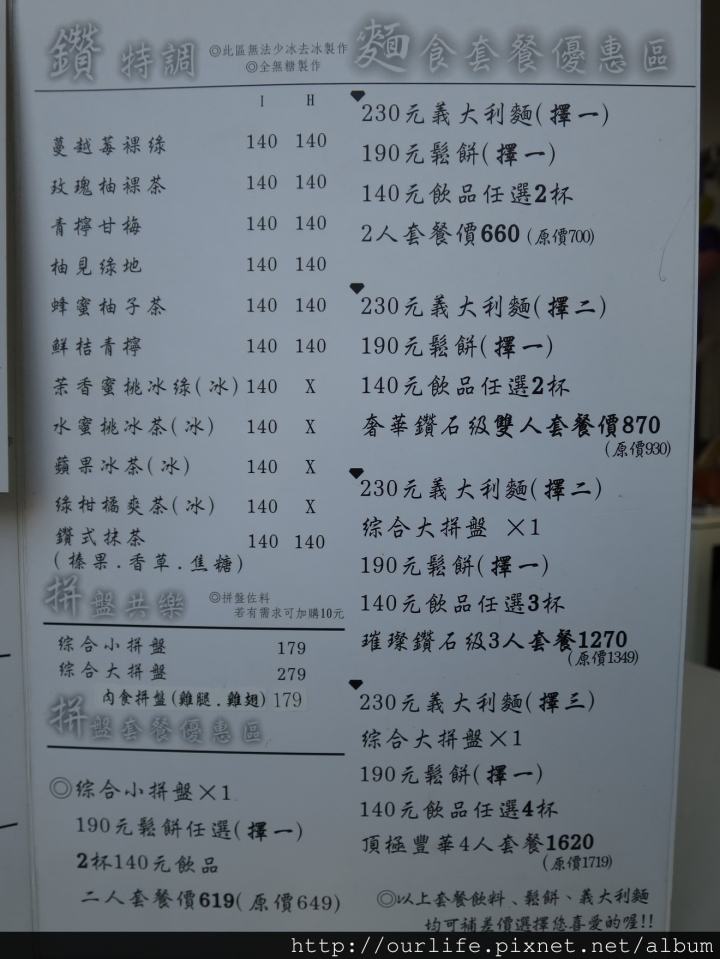 鑽 特調
◎此區無法少冰去冰製作
◎全無糖製作
I H
蔓越莓裸綠 140 140
玫瑰柚裸茶 140 140
青檸甘梅 140 140
柚見綠地 140 140
蜂蜜柚子茶 140 140
鮮桔青檸 140 140
茉香蜜桃冰綠(冰) 140 X
水蜜桃冰茶(冰) 140 X
蘋果冰茶(冰) 140 X
綠柑橘爽茶(冰) 140 X
鑽式抹茶 140 140
(榛果.香草.焦糖)
拼盤共樂
◎拼盤佐料
若有需求可加購10元
綜合小拼盤 179
綜合大拼盤 279
肉食拼盤(雞腿.雞翅) 179
拼盤套餐優惠區
◎綜合小拼盤×1
190元鬆餅任選(擇一)
2杯140元飲品
二人套餐價619(原價649)
麵食套餐優惠區
230元義大利麵(擇一)
190元鬆餅(擇一)
140元飲品任選2杯
2人套餐價660(原價700)
230元義大利麵(擇二)
190元鬆餅(擇一)
140元飲品任選2杯
奢華鑽石級雙人套餐價870
(原價930)
230元義大利麵(擇二)
綜合大拼盤 ×1
190元鬆餅(擇一)
140元飲品任選3杯
璀璨鑽石級3人套餐1270
(原價1349)
230元義大利麵(擇三)
綜合大拼盤×1
190元鬆餅(擇一)
140元飲品任選4杯
頂極豐華4人套餐1620
(原價1719)
◎以上套餐飲料、鬆餅、義大利麵
均可補差價選擇您喜愛的喔!!
http://ourlife.pixnet.net/album